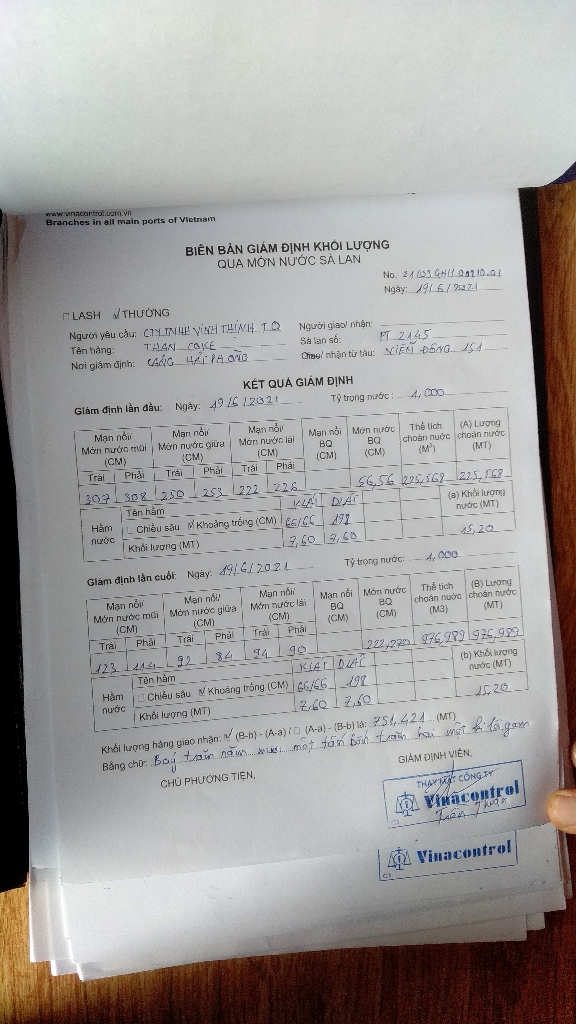 www.vinacontrol.com.vn
Branches in all main ports of Vietnam
BIÊN BẢN GIÁM ĐỊNH KHỐI LƯỢNG
QUA MỚN NƯỚC SÀ LAN
No.
Ngày: 19/6/2021
LASH THƯỜNG
Người yêu cầu: CTY TNHH VĨNH THỊNH T.Q Người giao/ nhận:
Tên hàng: THAN COKE Sà lan số: PT 2145
Nơi giám định: CẢNG HẢI PHÒNG Giao/ nhận từ tàu: VIỄN ĐÔNG 151
KẾT QUẢ GIÁM ĐỊNH
Giám định lần đầu: Ngày: 19/6/2021 Tỷ trọng nước: 1,000
Mạn nổi/ Mớn nước mũi (CM) Mạn nổi/ Mớn nước giữa (CM) Mạn nổi/ Mớn nước lái (CM) Mạn nổi BQ (CM) Mớn nước BQ (CM) Thể tích choán nước (M³) (A) Lượng choán nước (MT)
Trái Phải Trái Phải Trái Phải
307 308 250 253 222 226 56,56 225,568 225,568
Hầm nước Tên hầm KLAT DLAT (a) Khối lượng nước (MT)
Chiều sâu Khoảng trống (CM) 66/66 198
Khối lượng (MT) 7,60 7,60 15,20
Giám định lần cuối: Ngày: 19/6/2021 Tỷ trọng nước: 1,000
Mạn nổi/ Mớn nước mũi (CM) Mạn nổi/ Mớn nước giữa (CM) Mạn nổi/ Mớn nước lái (CM) Mạn nổi BQ (CM) Mớn nước BQ (CM) Thể tích choán nước (M3) (B) Lượng choán nước (MT)
Trái Phải Trái Phải Trái Phải
123 114 92 84 94 90 222,270 976,989 976,989
Hầm nước Tên hầm KLAT DLAT (b) Khối lượng nước (MT)
Chiều sâu Khoảng trống (CM) 66/66 198
Khối lượng (MT) 7,60 7,60 15,20
Khối lượng hàng giao nhận: (B-b) - (A-a) / (A-a) - (B-b) là: 751,421 (MT)
Bằng chữ: Bảy trăm năm mươi một tấn bốn trăm hai một ki lô gam
CHỦ PHƯƠNG TIỆN, GIÁM ĐỊNH VIÊN,
THAY MẶT CÔNG TY
Vinacontrol
Vinacontrol